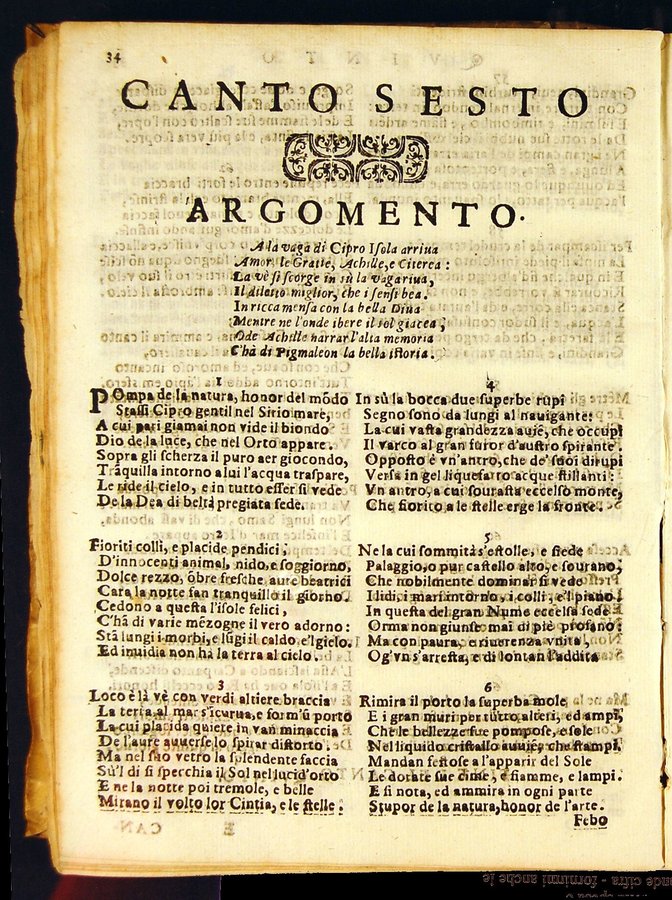 34
CANTO SESTO
ARGOMENTO.
A la vaga di Cipro Isola arriua
Amor, le Gratie, Achille, e Citerea:
La vè si scorge in sù la vaga riua,
Il diletto miglior, che i sensi bea.
In ricca mensa con la bella Diua
Mentre ne l'onde ibere il sol giacea,
Ode Achille narrar l'alta memoria
C'hà di Pigmaleon la bella istoria.
1
POmpa de la natura, honor del mōdo
Stassi Cipro gentil nel Sirio mare,
A cui pari giamai non vide il biondo
Dio de la luce, che nel Orto appare.
Sopra gli scherza il puro aer giocondo,
Trāquilla intorno a lui l'acqua traspare,
Le ride il cielo, e in tutto esser si vede
De la Dea di beltà pregiata sede.
2
Fioriti colli, e placide pendici,
D'innocenti animal, nido, e soggiorno,
Dolce rezzo, ōbre fresche aure beatrici
Cara la notte fan tranquillo il giorno.
Cedono a questa l'isole felici,
C'hā di varie mēzogne il vero adorno:
Stā lungi i morbi, e lūgi il caldo e'l gielo.
Ed inuidia non hà la terra al cielo.
3
Loco è là vè con verdi altiere braccia
La terra al mar s'icurua, e form'ū porto
La cui placida quiete in van minaccia
De l'aure auuerse lo spirar distorto.
Ma nel suo vetro la splendente faccia
Sù'l dì si specchia il Sol nel lucid'orto
E ne la notte poi tremole, e belle
Mirano il volto lor Cintia, e le stelle.
4
In sù la bocca due superbe rupi
Segno sono da lungi al nauigante:
La cui vasta grandezza auiē, che occupi
Il varco al gran furor d'austro spirante.
Opposto è vn'antro, che de' suoi dirupi
Versa in gel liquefatto acque stillanti:
Vn antro, a cui sourasta eccelso monte,
Che fiorito a le stelle erge la fronte.
5
Ne la cui sommità s'estolle, e siede
Palaggio, o pur castello alto, e sourano,
Che nobilmente dominar si vede
I lidi, i mari intorno, i colli, e'l piano.
In questa del gran Nume eccelsa sede
Orma non giunse mai di piè profano:
Ma con paura, e riuerenza vnita,
Og'vn s'arresta, e di lontan l'addita
6
Rimira il porto la superba mole
E i gran muri per tutto alteri, ed ampi,
Che le bellezze fur pompose, e sole
Nel liquido cristallo auuiē, che stampi.
Mandan festose a l'apparir del Sole
Le dorate sue cime, e fiamme, e lampi.
E si nota, ed ammira in ogni parte
Stupor de la natura, honor de l'arte.
Febo